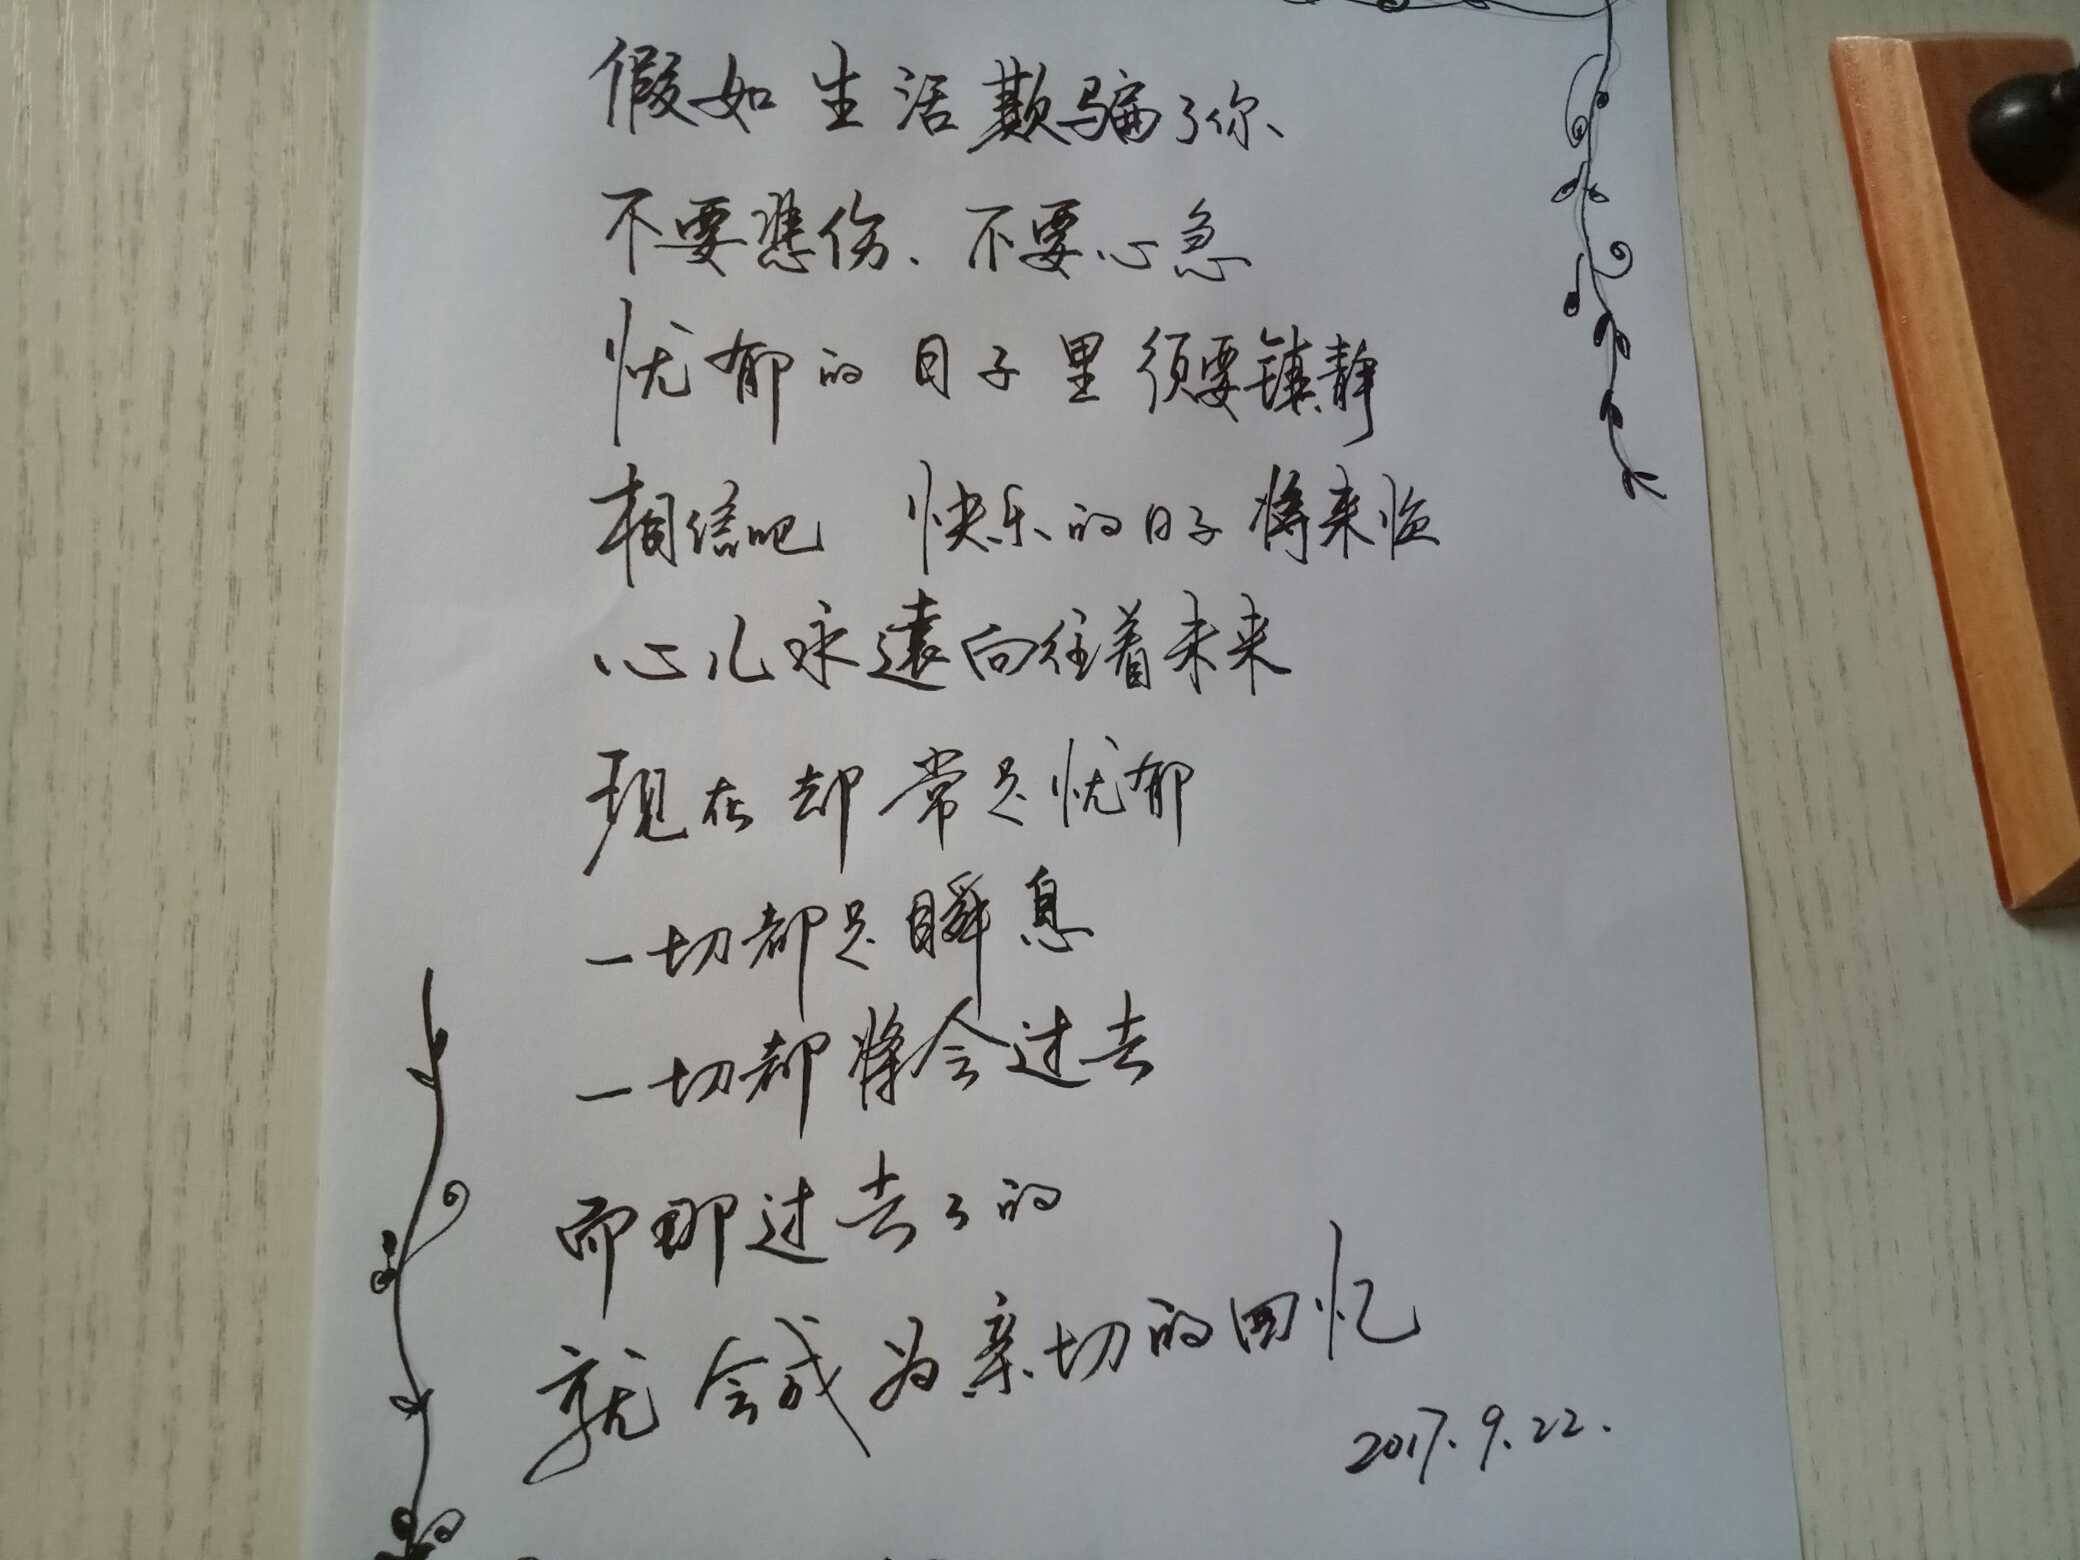 假如生活欺骗了你、
不要悲伤、不要心急
忧郁的日子里须要镇静
相信吧 快乐的日子将来临
心儿永遠向往着未来
现在却常是忧郁
一切都是瞬息
一切都将会过去
而那过去了的
就会成为亲切的回忆
2017.9.22.